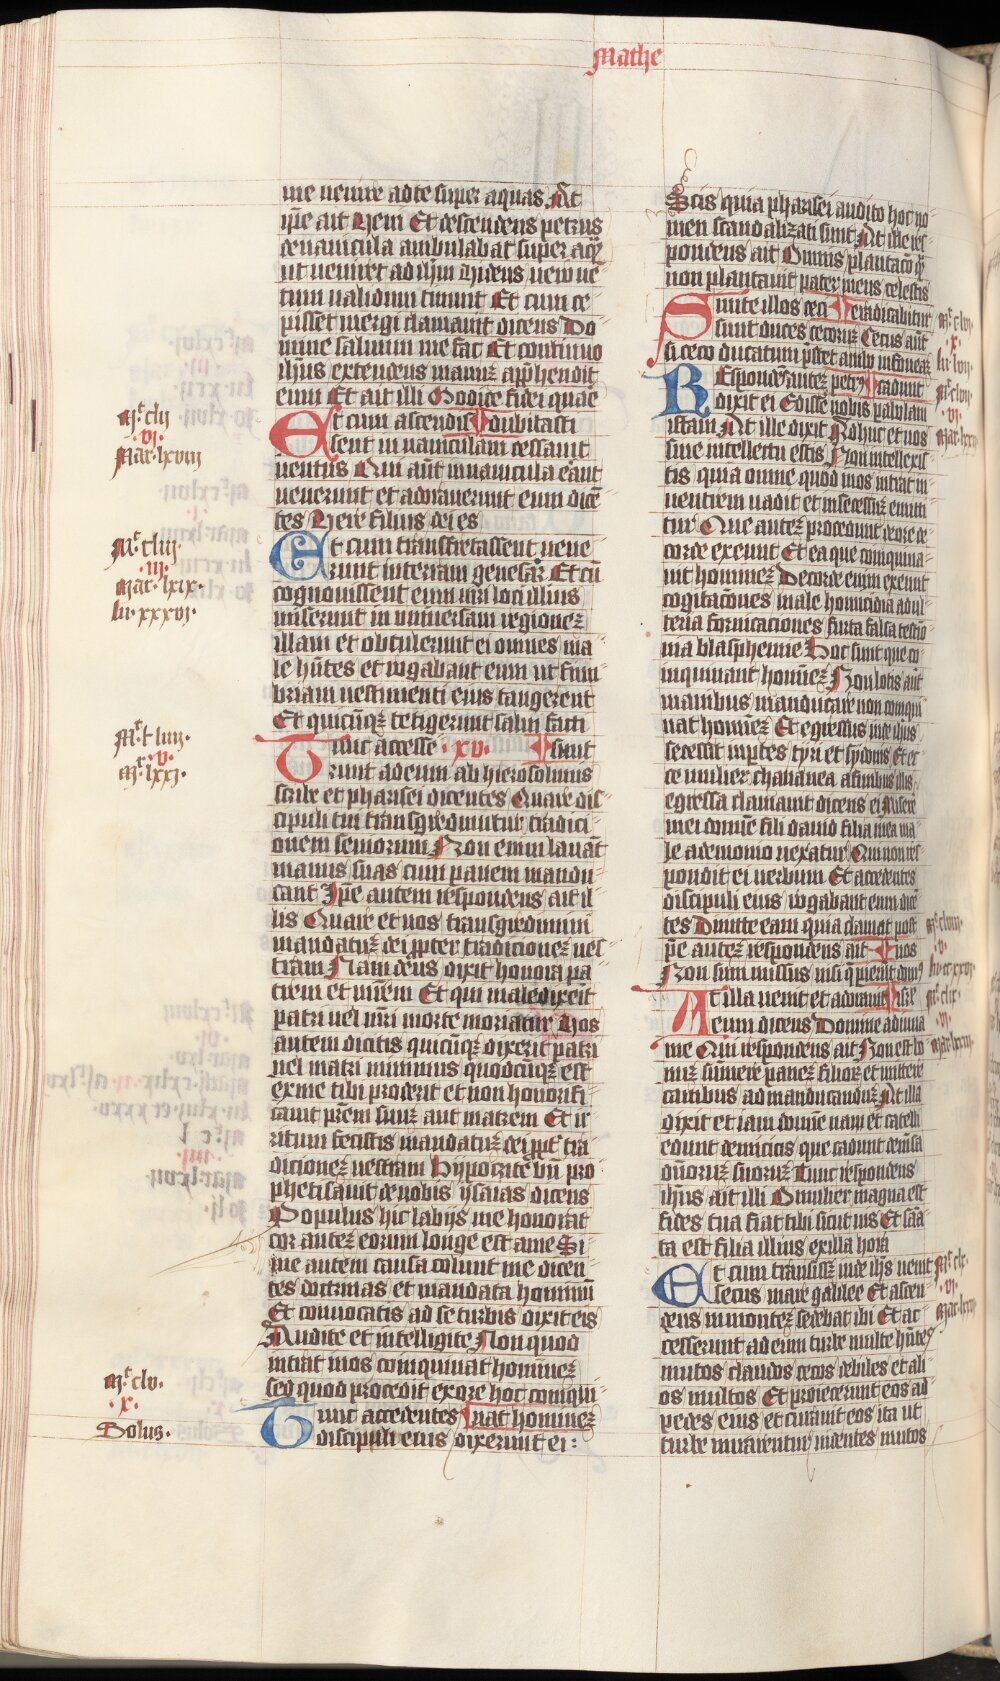 Mathe
me venire ad te super aquas At
ip̄e ait Veni Et descendens petrus
de navicula ambulabat super aq̄ꝫ
ut veniret ad ih̄m Videns vero ve
tum validum timuit Et cum ce
pisset mergi clamavit dicens Do
mine salvum me fac Et continuo
ih̄us extendens manuꝫ app̄hendit
eum Et ait illi Modice fidei quare
Et cum ascendis dubitasti
sent in naviculam cessavit
ventus Qui aūt in navicula erāt
venerunt et adoraverunt eum dicē
tes Vere filius dei es
Et cum transfretassent vene
runt in terram genesar Et cū
cognovissent eum viri loci illius
miserunt in universam regioneꝫ
illam et obtulerunt ei omnes ma
le hūtes et rogabant eum ut fim
briam vestimenti eius tangerent
Et quicūqꝫ tetigerunt salvi facti
Tunc accesse ·xv· sunt
runt ad eum ab hierosolimis
scribe et pharisei dicentes Quare dis
cipuli tui transgrediuntur tradici
onem seniorum Non enim lavāt
manus suas cum panem mandu
cant Ip̄e autem respondens ait il
lis Quare et vos transgredimini
mandatuꝫ dei p̄pter tradicioneꝫ ves
tram Nam deus dixit honora pa
trem et mr̄em Et qui maledixerit
patri vel mr̄i morte moriatur Vos
autem dicitis quicūqꝫ dixerit patri
vel matri munus quodcūqꝫ est
ex me tibi proderit et non honorifi
cavit pr̄em suuꝫ aut matrem Et ir
ritum fecistis mandatuꝫ dei p̄pt̄ tra
dicioneꝫ vestram Hypocrite bn̄ pro
phetisavit de vobis ysaias dicens
Populus hic labijs me honorat
cor auteꝫ eorum longe est a me Si
ne autem causa colunt me docen
tes doctrinas et mandata hominū
Et convocatis ad se turbis dixit eis
Audite et intelligite Non quod
intrat in os coinquinat homineꝫ
sed quod procedit ex ore hoc coinqui
Tunc accedentes nat homineꝫ
discipuli eius dixerunt ei:
Mr̄ clij
·vi·
Mar· lxviij
Mr̄ cliij·
·iij·
Mar· lxix·
lu· xxxvj·
·v·
Mr̄ lxxj·
Mr̄ clv·
·x·
Solus·
Scis quia pharisei audito hoc no
men scandalizati sunt At ille res
pondens ait Omnis plantacō q̄
non plantavit pater meus celestis
Sinite illos ceci eradicabitur
sunt duces cecoruꝫ Cecus aūt
si ceco ducatum p̄stet ambo in foveaꝫ
Respondens auteꝫ petrꝰ cadunt
dixit ei Edisse nobis pabolam
istam At ille dixit Adhuc et vos
sine intellectu estis Non intellexis
tis quia omne quod in os intrat in
ventrem vadit et in secessuꝫ emitti
tur Que auteꝫ procedunt de ore de
corde exeunt Et ea que coinquina
nit homineꝫ De corde enim exeunt
cogitacōnes male homicidia adul
teria fornicaciones furta falsa testio
nia blasphemie Hoc sunt que co
inquinant homineꝫ Non lotis aūt
manibus manducare non coinqui
nat homineꝫ Et egressus inde ih̄us
secessit in p̄tes tyri et sydonis Et ec
ce mulier chananea a finibus illis
egressa clamavit dicens ei Miserē
mei domīe fili david filia mea ma
le a demonio vexatur Qui non res
pondit ei verbum Et accedentes
discipuli eius rogabant eum dicē
tes Dimitte eam quia clamat post
pē auteꝫ respondens ait nos
Non sum missus nisi
At illa venit et adoravit
eum dicens Domine adiuva
me Qui respondens ait Non est bo
nuꝫ sumere paneꝫ filioꝝ et mittere
canibus ad manducanduꝫ At illa
dixit et iam domīe nam et catelli
edunt de micis que cadunt de mēsa
dnōruꝫ suoruꝫ Tunc respondens
ih̄us ait illi O mulier magna est
fides tua fiat tibi sicut vis Et sāa
ta est filia illius ex illa hora
Et cum transissꝫ inde ih̄s venit
secus mare galilee Et ascen
dens in monteꝫ sedebat ibi Et ac
cesserunt ad eum turbe multe hūtes
mutos claudos cecos debiles et ali
os multos Et proiecerunt eos ad
pedes eius et curavit eos ita ut
turbe mirarentur videntes mutos
·x·
lu· lvij·
·vi·
·v·
Mr̄ clix·
·vi·
Mr̄ clx·
·vi·